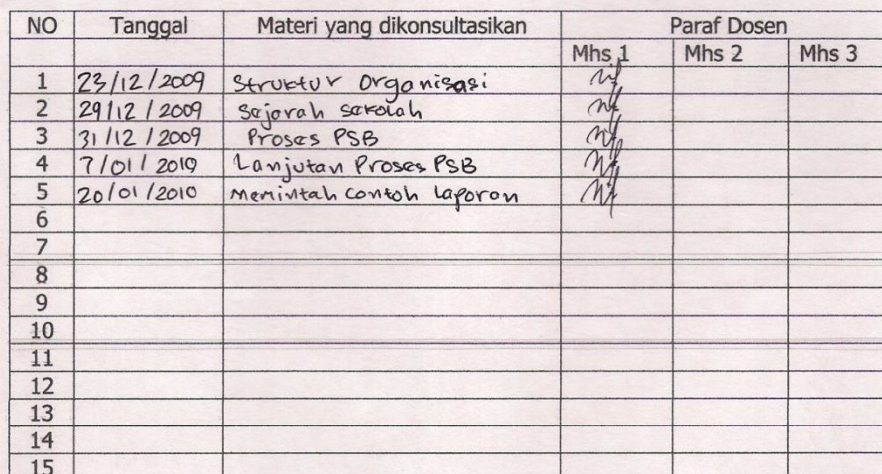 NO Tanggal Materi yang dikonsultasikan Paraf Dosen
Mhs 1 Mhs 2 Mhs 3
1 23/12/2009 Struktur Organisasi
2 29/12/2009 Sejarah sekolah
3 31/12/2009 Proses PSB
4 7/01/2010 Lanjutan Proses PSB
5 20/01/2010 Memintah contoh laporan
6
7
8
9
10
11
12
13
14
15